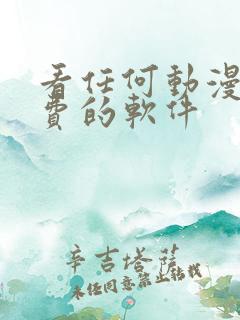 看任何動漫
費的軟件
辛吉塔薩
未经同意禁止转载